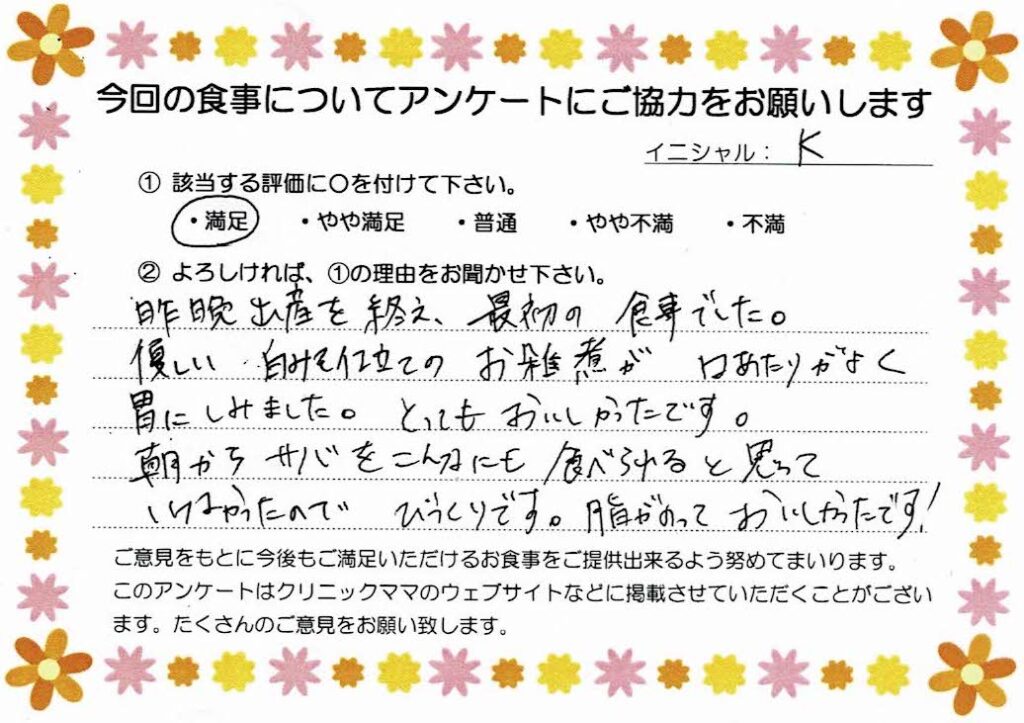 今回の食事についてアンケートにご協力をお願いします
イニシャル： K
① 該当する評価に○を付けて下さい。
・満足 ・やや満足 ・普通 ・やや不満 ・不満
② よろしければ、①の理由をお聞かせ下さい。
昨晩出産を終え、最初の食事でした。
優しい 白みそ仕立ての お雑煮が 口あたりがよく
胃にしみました。とってもおいしかったです。
朝からサバをこんなにも食べられると思って
いなかったので びっくりです。脂がのっておいしかったです!
ご意見をもとに今後もご満足いただけるお食事をご提供出来るよう努めてまいります。
このアンケートはクリニックママのウェブサイトなどに掲載させていただくことがござい
ます。たくさんのご意見をお願い致します。